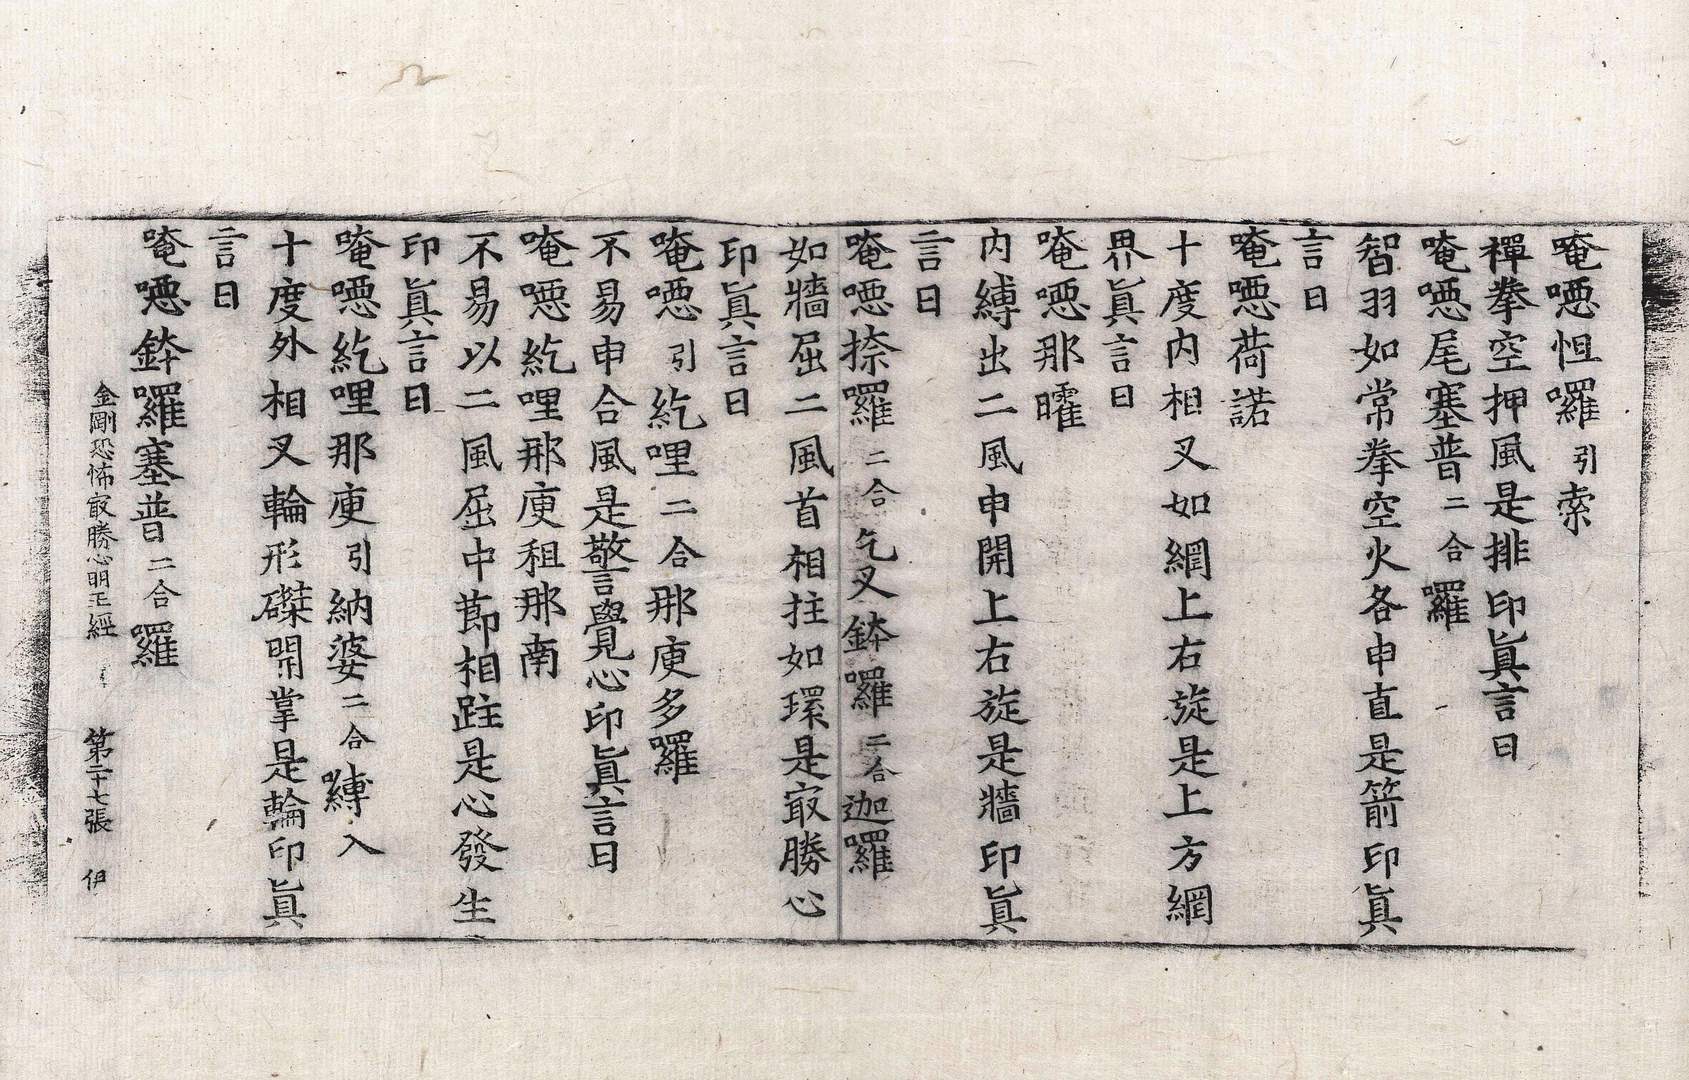 唵𠼝怛囉引索
禪拳空押風是排印眞言曰
唵𠼝尾塞普二合囉
智羽如常拳空火各申直是箭印眞
言曰
唵𠼝荷諾
十度内相叉如網上右旋是上方網
界眞言曰
唵𠼝那㬢
内縛出二風申開上右旋是牆印眞
言曰
唵𠼝捺囉二合乞叉鉢囉二合迦囉
如牆屈二風首相拄如環是㝡勝心
印眞言曰
唵𠼝引紇哩二合那庾多囉
不易申合風是警覺心印眞言曰
唵𠼝紇哩那庾租那南
不易以二風屈中節相跓是心發生
印眞言曰
唵𠼝紇哩那庾引納婆二合縛入
十度外相叉輪形磔開掌是輪印眞
言曰
唵𠼝鉢囉塞普二合囉
金剛恐怖㝡勝心明王經 第二十七張 伊